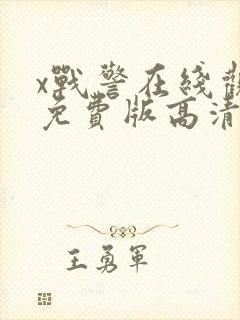 x戰警在綫觀
免費版高清
王勇軍